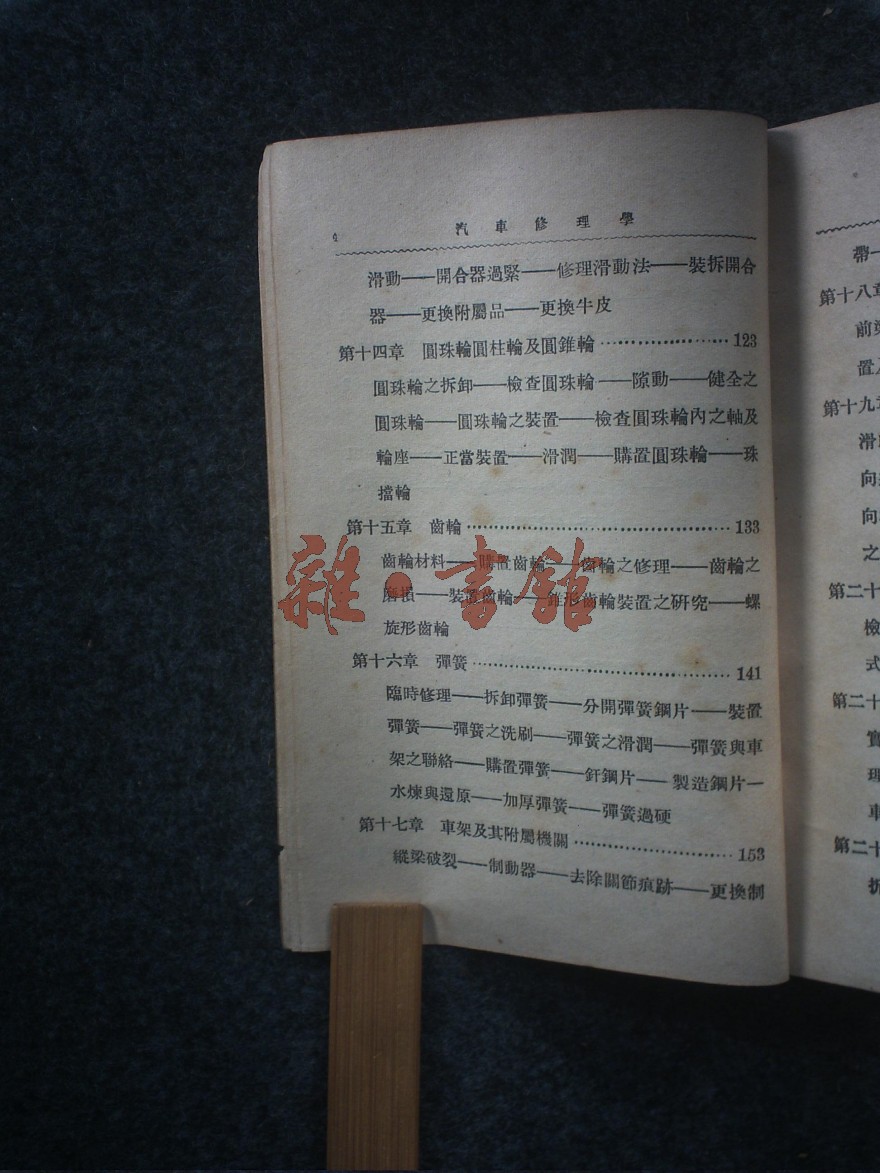 4
汽車修理學
滑動——開合器過緊——修理滑動法——裝拆開合
器——更換附屬品——更換牛皮
第十四章 圓珠輪圓柱輪及圓錐輪····················123
圓珠輪之拆卸——檢查圓珠輪——隙動——健全之
圓珠輪——圓珠輪之裝置——檢查圓珠輪內之軸及
輪座——正當裝置——滑潤——購置圓珠輪——珠
擋輪
第十五章 齒輪··········································133
齒輪材料——購置齒輪——齒輪之修理——齒輪之
磨損——裝置齒輪——錐形齒輪裝置之研究——螺
旋形齒輪
雜·書館
第十六章 彈簧··········································141
臨時修理——拆卸彈簧——分開彈簧鋼片——裝置
彈簧——彈簧之洗刷——彈簧之滑潤——彈簧與車
架之聯絡——購置彈簧——釬鋼片——製造鋼片—
水煉與還原——加厚彈簧——彈簧過硬
第十七章 車架及其附屬機關··························153
縱梁破裂——制動器——去除關節痕跡——更換制
帶—
第十八章
前
置
第十九章
滑
向
向
之
第二十
檢
式
第二十
實
理
車
第二十
折